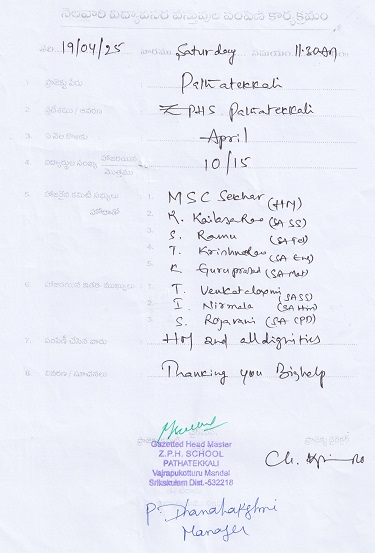 నెలవారీ విద్యావనరి వస్తువుల పంపిణీ కార్యక్రమం
19/04/25 వారము Saturday సమయం 11.30AM
1. ప్రాజెక్టు పేరు Pathatekkali
2. ZPHS Pathatekkali
3. ఏ నెల April
4. విద్యార్థుల సంఖ్య హాజరయిన మొత్తము 10/15
5. హాజరైన కమిటీ సభ్యులు 1. MSC Sekhar (HM)
2. K. Kailasa Rao (SA SS)
S. Ramu
T. Krishna Rao (SA Eng)
K Guruprasad (SA Mat)
6. 1. T. Venkatalaxmi (SASS)
2. I. Nirmala (SA Hin)
3. S. Rojarani (SA CPD)
7. HM and all dignities
8. Thanking you Bighelp
Gazetted Head Master
Z.P.H. SCHOOL
PATHATEKKALI
Vajrapukotturu Mandal
Srikakulam Dist.-532218
Ch.
P. Dhanalakshmi
Manager